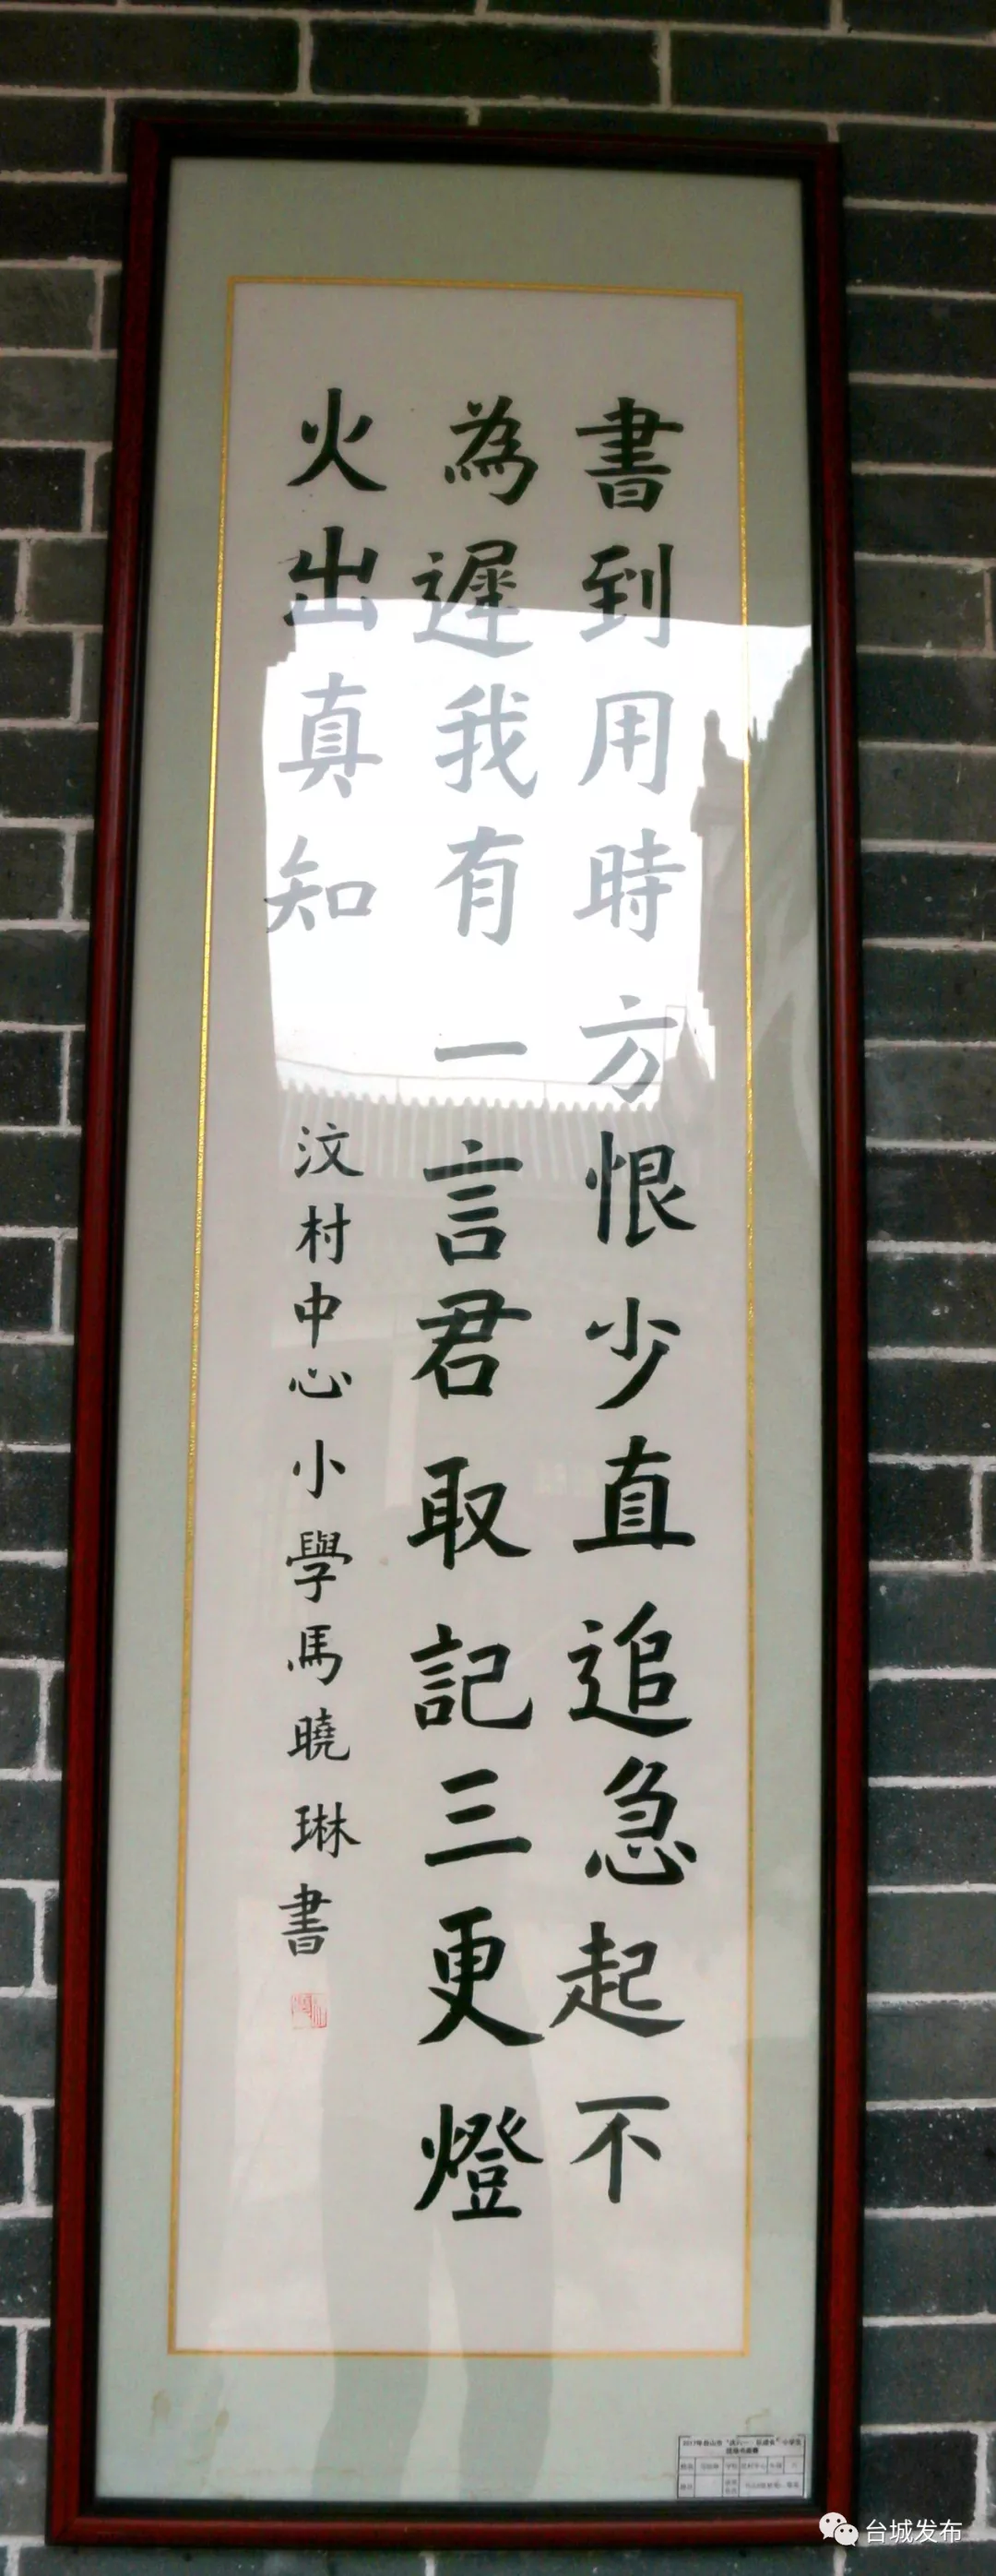 書到用時方恨少直追急起不
為遲我有一言君取記三更燈
火出真知
汶村中心小學馬曉琳書
台城发布